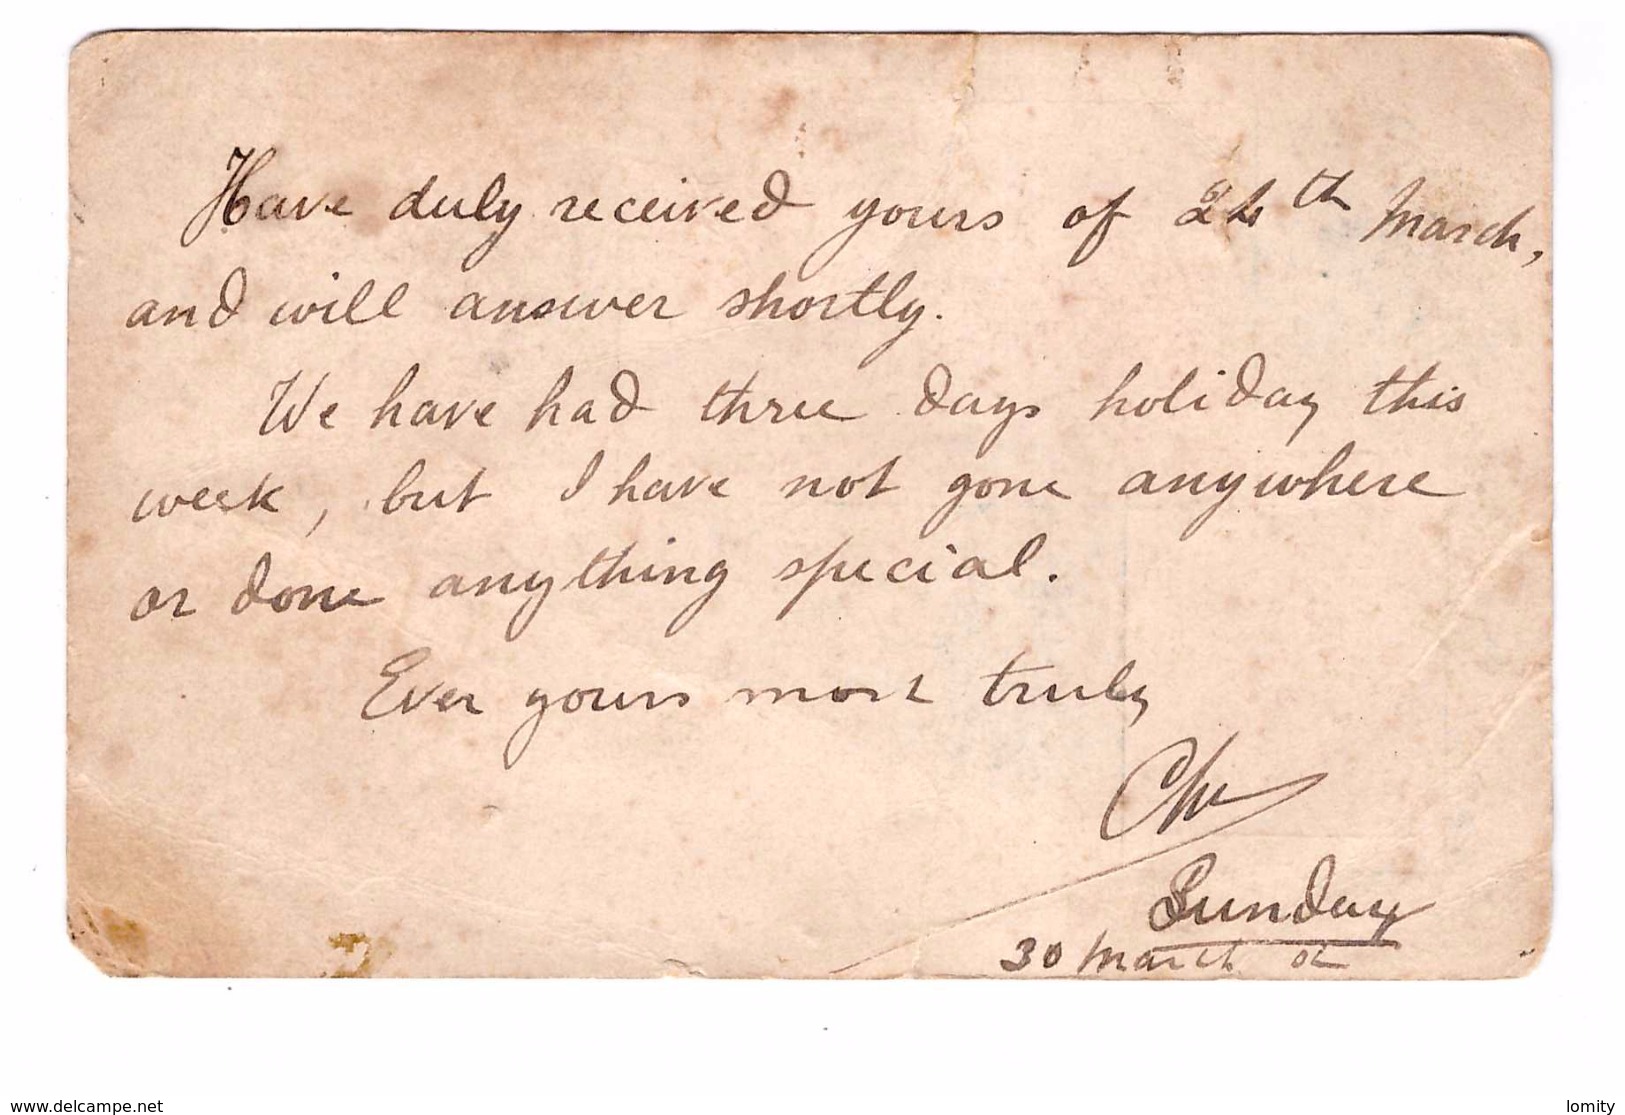 Have duly received yours of 24th March,
and will answer shortly.
We have had three days holiday this
week, but I have not gone anywhere
or done anything special.
Ever yours most truly
Sunday
30 March 02
www.delcampe.net
lomity